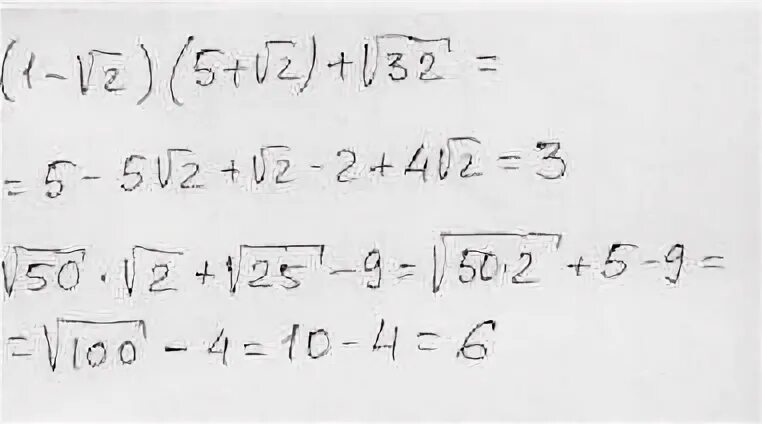 (1-√2)(5+√2)+√32 =
= 5 - 5√2 + √2 - 2 + 4√2 = 3
√50 · √2 + √25 - 9 = √50·2 + 5 - 9 =
= √100 - 4 = 10 - 4 = 6